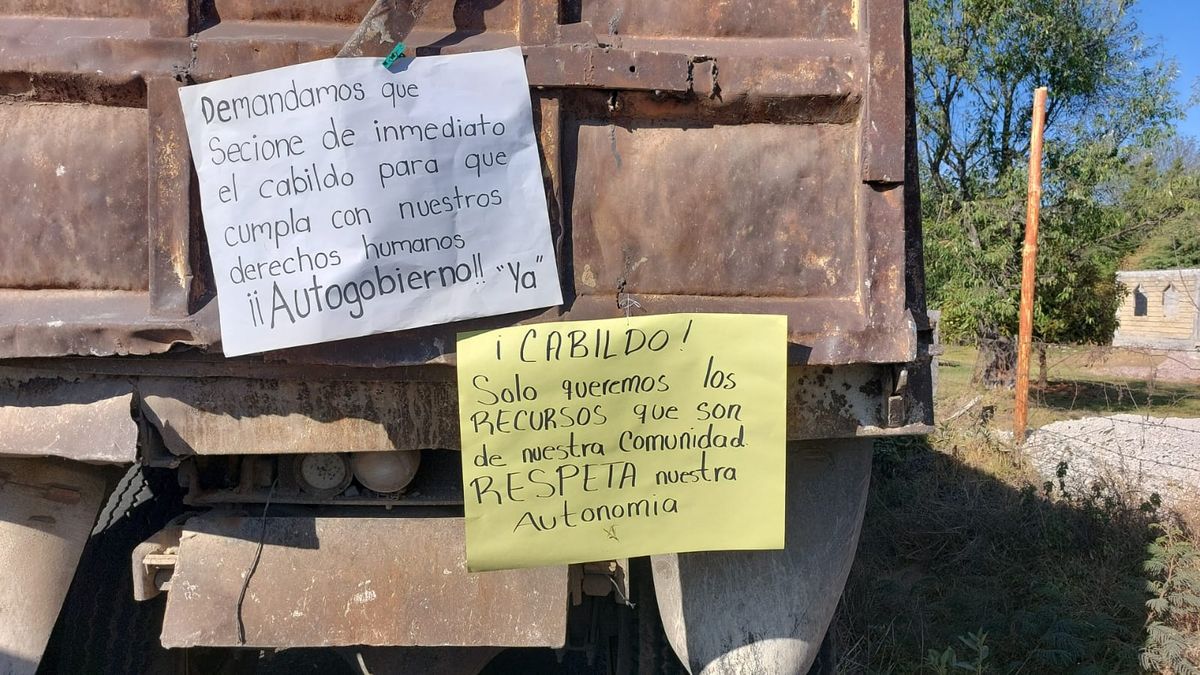 Demandamos que
Secione de inmediato
el cabildo para que
cumpla con nuestros
derechos humanos
¡¡Autogobierno!! "Ya"
¡CABILDO!
Solo queremos los
RECURSOS que son
de nuestra Comunidad.
RESPETA nuestra
Autonomia